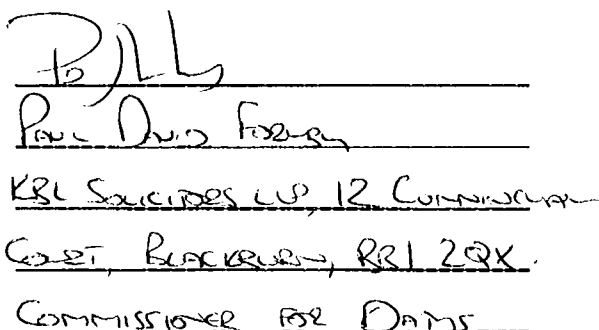 Paul David
KBL Solicitors LLP, 12 Cunningham
Court, Blackburn, BB1 2QX.
Commissioner for Oaths